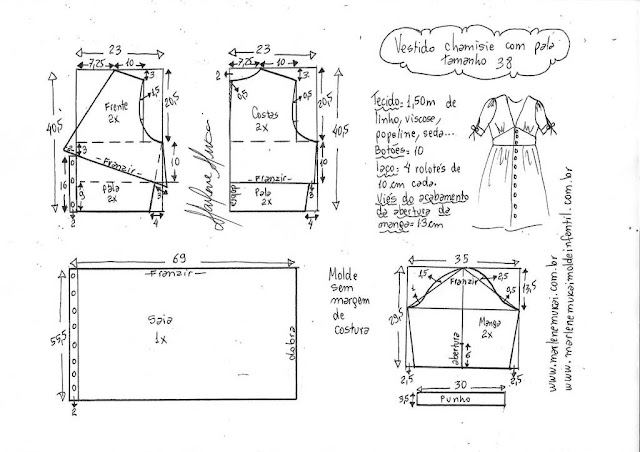 Vestido chamisie com pala
tamanho 38
Tecido= 1,50m de
linho, viscose,
popeline, seda...
Botões= 10
Laço= 4 rolotês de
10 cm cada.
Viés do acabamento
da abertura da
manga= 13cm
23
7,25 10
3
1,5
20,5
40,5
Frente
2x
3
Franzir
10
16
Pala
2x
9
3
2
4
23
7,25 10
2
0,5
3
0,5
20,5
40,5
Costas
2x
10
Franzir
Pala
2x
dobra
4
Marlene Mukai
69
Franzir
55,5
Saia
1x
dobra
2
Molde
sem
margem
de
costura
35
1,5
2,5
Franzir
1
0,5
13,5
29,5
Manga
2x
abertura
6
2,5
2,5
30
3,5
Punho
www.marlenemukai.com.br
www.marlenemukaimoldeinfantil.com.br